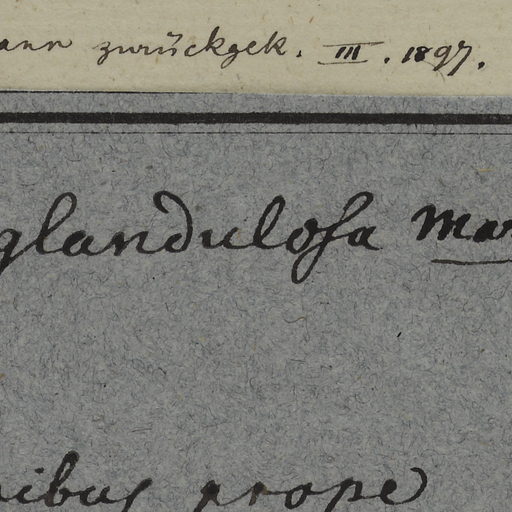 ann zurückgek. III. 1897.
glandulosa Mar
ibus prope